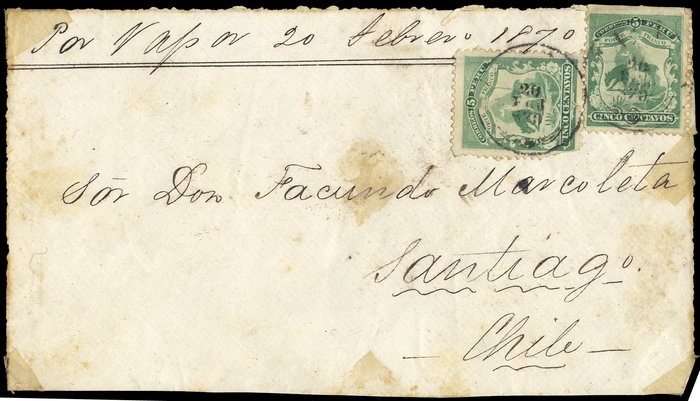 Por Vapor 20 Febrero 1870
Sōr Don Facundo Marcoleta
Santiagº.
— Chile —
CORREOS 5 PERU
PORTE FRANCO
CINCO CENTAVOS
CORREOS 5 PERU
CINCO CENTAVOS
20